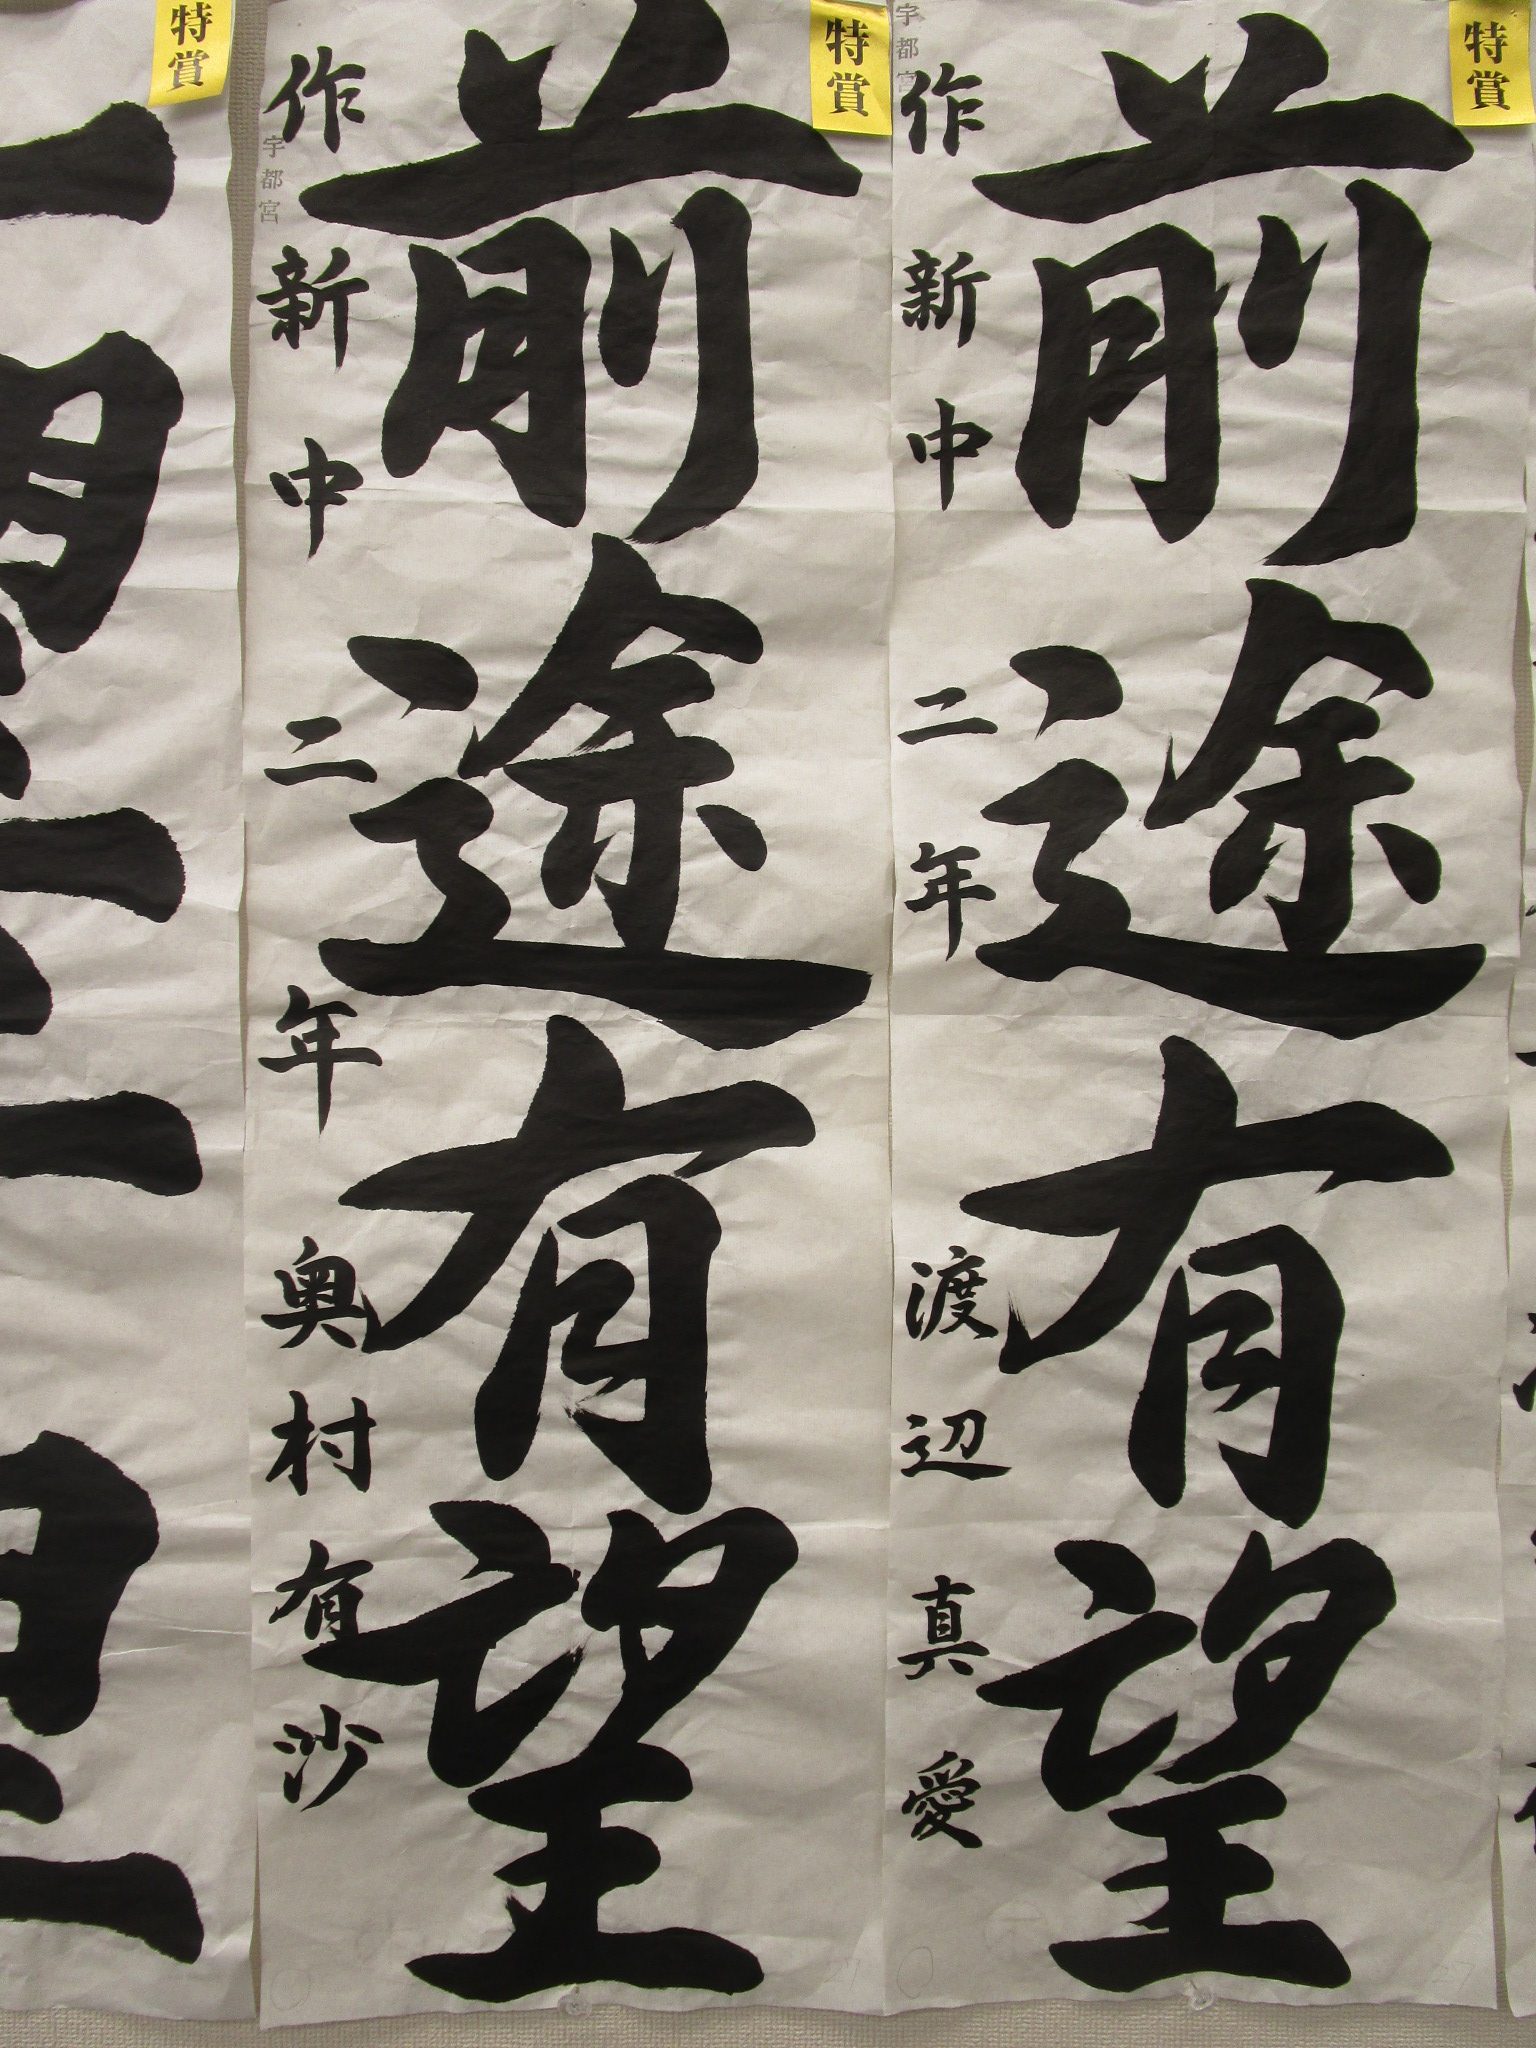 特賞
宇都宮
前途有望
作新中二年渡辺真愛
特賞
宇都宮
前途有望
作新中二年奥村有沙
特賞